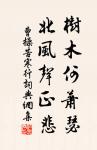 樹木何蕭瑟
北風聲正悲
曹操苦寒行詞典網集